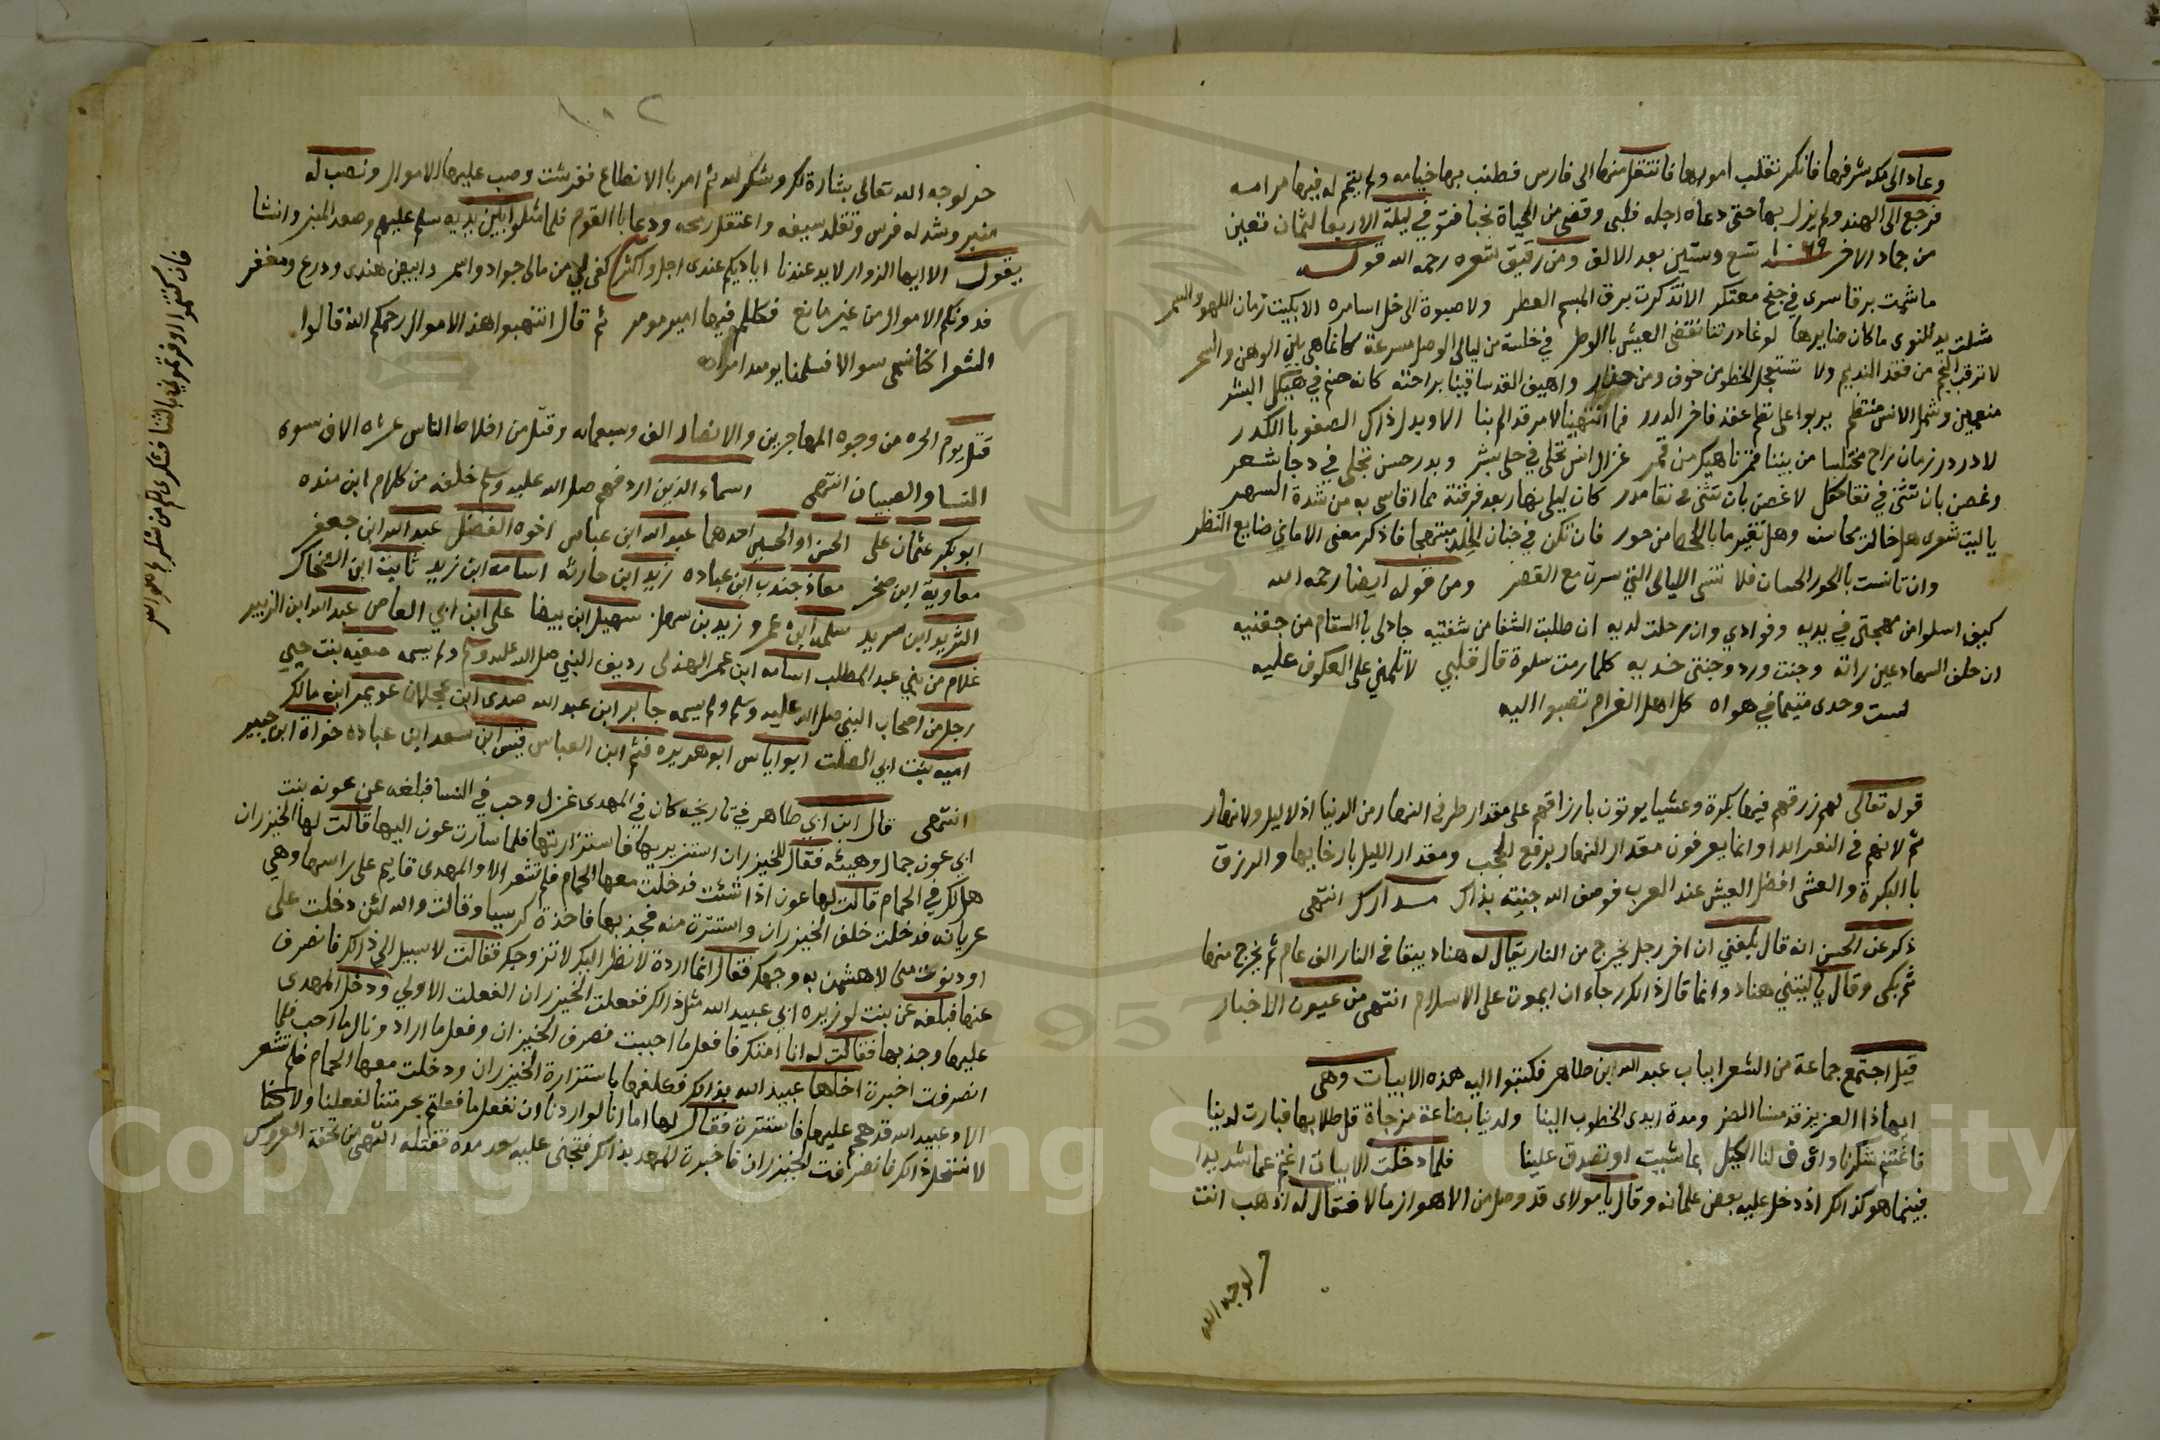 وعاد الى مكه شرفها فانكر تقلب امورها فانتقل منها الى فارس فطنب بها خيامه ولم يتم له فيها مرامه
فرجع الى الهند ولم يزل بها حتى دعاه اجله فلبى وقضى من الحياة نحبا فتوفي في ليلة الاربعا لثمان بقين
من جماد الاخر ١٠٦٩ تسع وستين بعد الالف ومن رقيق شعره رحمه الله قوله
ما شمت برقا سرى في جنح معتكر الا تذكرت برق المبسم العطر ولا صبوة الى خل اسامره الا بكيت زمان اللهو والسمر
شلت يد للنوى ما كان ضايرها لو غادرتنا نقضي العيش بالوطر في خلسة من ليالي الوصل مسرعة كانما هي بين الوهن والسحر
لا نرقب النجم من فقد النديم ولا نستعجل الخطو من خوف ومن حذار واهيف القد ساقينا براحته كانه صنم في هيكل البشر
منعمين وشمل الانس منتظم يربوا على نظم عقد فاخر الدرر فما انتهينا لامر قد الم بنا الا وبدل ذاك الصفو بالكدر
لا در در زمان راح مختلسا من بيننا قمرا ناهيك من قمر غزال انس تحلى في حلى بشر وبدر حسن تجلى في دجا شعر
وغصن بان تثنى في نقا كفل لا غصن بان تثنى في نقا مدر كان ليلى نهار بعد فرقته مما اقاسي به من شدة السهر
ياليت شعرى هل حالت محاسنه وهل تغير ما باللحظ من حور فان تكن في جنان الخلد مبتهجا فاذكر معنى الاماني ضايع النظر
وان تانست بالحور الحسان فلا تنسى الليالى التي سرت مع القصر ومن قوله ايضا رحمه الله
كيف اسلوا من مهجتي في يديه وفوادي وان رحلت لديه ان طلبت الشفا من شفتيه جاد لي بالسقام من جفنيه
ان حلف السهاد عين راته وجنت ورد وجنتى خديه كلما رمت سلوة قال قلبي لا تلمني على العكوف عليه
لست وحدى متيما في هواه كل اهل الغرام تصبوا اليه
قوله تعالى لهم رزقهم فيها بكرة وعشيا يوتون بارزاقهم على مقدار طرفي النهار من الدنيا اذ لا ليل ولا نهار
ثم لانهم في النعر ابدا وانما يعرفون مقدار النهار برفع الحجب ومقدار الليل بارخايها والرزق
بالبكرة والعشى افضل العيش عند العرب فوصف الله جنته بذاك مدارك انتهى
ذكر عن الحسن انه قال بلغني ان اخر رجل يخرج من النار يقال له هناد يبقا في النار الف عام ثم يخرج منها
ثم بكى وقال ياليتني هناد وانما قال ذالك رجاء ان يموت على الاسلام انتهى من عيون الاخبار
قيل اجتمع جماعة من الشعرا بباب عبد الله ابن طاهر فكتبوا اليه هذه الابيات وهي
ايهاذا العزيز قد مسنا الضر ومدة ايدى الخطوب الينا ولدينا بضاعة مزجاة قل طلابها فبارت لدينا
فاغتنم شكرنا واوف لنا الكيل بما شيت او تصدق علينا فلما دخلت الابيات اغتم غما شديدا
فبينما هو كذالك اذ دخل عليه بعض غلمانه وقال يا مولاي قد وصل من الاهواز مالا فقال له اذهب انت
حر لوجه الله
١٠٢
حر لوجه الله تعالى بشارة لك وشكر لله ثم امر بالانطاع ففرشت وصب عليها الاموال ونصب له
منبر وشد له فرس وتقلد سيفه واعتقل رمحه ودعا بالقوم فلما مثلوا بين يديه سلم عليهم وصعد المنبر وانشا
يقول الا ايها الزوار لا يد عندنا اياديكم عندى اجل واكثر كفى لي من مالي جواد واسمر وابيض هندى ودرع ومغفر
فدونكم الاموال من غير مانع فكلكم فيها امير مومر ثم قال انتهبوا هذه الاموال رحمكم الله قالوا
الشعرا
فان كتمتموا او فهتموني بالثنا فشكرى لكم من شكركم
قتل يوم الحره من وجوه المهاجرين والانصار الف وسبعمائه وقتل من اخلاط الناس عشره الاف سوى
النسا والصبيان انتهى اسماء الذين اردفهم صلى الله عليه وسلم خلفه من كلام ابن منده
ابو بكر عثمان على الحسن او الحسين احدهما عبد الله ابن عباس اخوه الفضل عبد الله ابن جعفر
معاوية ابن صخر معاذ جندب ابن عباده زيد ابن حارثه اسامه ابن زيد ثابت ابن الضحاك
الثريد ابن سريد سلمه ابن عمرو زيد بن سهل سهيل ابن بيضا على ابن ابي العاص عبد الله ابن الزبير
غلام من بني عبد المطلب اسامه ابن عمر الهذلي رديف النبي صلى الله عليه وسلم ولم يسمه صفيه بنت حيي
رجل من اصحاب النبي صلى الله عليه وسلم ولم يسمه جابر ابن عبد الله صدى ابن عجلان عويمر ابن مالك
اميه بنت ابي الصلت ابو اياس ابو هريره قثم ابن العباس قيس ابن سعد ابن عباده خواة ابن جبير
انتهى قال ابن ابي طاهر في تاريخه كان في المهدى غزل وحب في النسا فبلغه عن عونه بنت
ابي عون جمال وهيئه فقال للخيزران استزيريها فاستزارتها فلما سارت عون اليها قالت لها الخيزران
هل لكي في الحمام قالت لها عون اذا شئت فدخلت معها الحمام فلم تشعر الا والمهدى قايم على راسها وهي
عريانه فدخلت خلف الخيزران واستترة منه فجذبها فاخذة كرسيا وقالت والله لئن دخلت على
او دنوت منى لاهشمن به وجهك فقال انما اردة لانظر اليك لاتزوجك فقالت لا سبيل الى ذالك فانصرف
عنها فبلغه عن بنت لوزيره ابي عبيد الله مثل ذالك ففعلت الخيزران الفعلت الاولي ودخل المهدى
عليها وجذبها فقالت له انا امتك فافعل ما احببت فصرف الخيزران وفعل ما اراد ونال ما احب فلما
انصرفت اخبرة اخاها عبيد الله بذالك فعلفها باستزارة الخيزران ودخلت معها الحمام فلم تشعر
الا وعبيد الله قد هجم عليها فاستترة فقال لها اما انا لو اردنا ان نفعل ما فعلتم بحرمتنا لفعلنا ولاكنا
لا نستحل ذالك فانصرفت الخيزران فاخبرة المهدى بذالك فتجنى عليه بعد مده فقتله انتهى من تحفة العروس
Copyright © King Saud University
1957